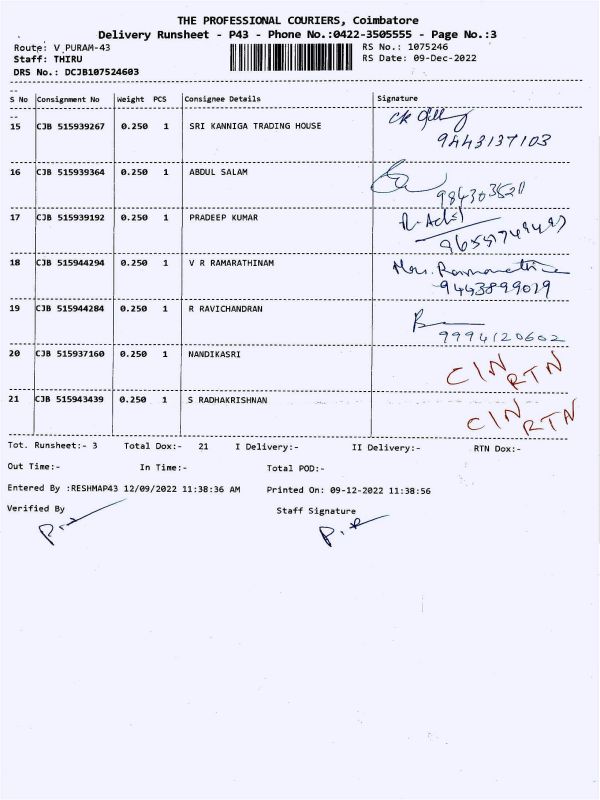 THE PROFESSIONAL COURIERS, Coimbatore
Delivery Runsheet - P43 - Phone No.:0422-3505555 - Page No.:3
Route: V PURAM-43 RS No.: 1075246
Staff: THIRU RS Date: 09-Dec-2022
DRS No.: DCJB107524603
S No Consignment No Weight PCS Consignee Details Signature
15 CJB 515939267 0.250 1 SRI KANNIGA TRADING HOUSE
9443137103
16 CJB 515939364 0.250 1 ABDUL SALAM
17 CJB 515939192 0.250 1 PRADEEP KUMAR
18 CJB 515944294 0.250 1 V R RAMARATHINAM
9443899019
19 CJB 515944284 0.250 1 R RAVICHANDRAN
9994120602
20 CJB 515937160 0.250 1 NANDIKASRI
CIN RTN
21 CJB 515943439 0.250 1 S RADHAKRISHNAN
CIN RTN
Tot. Runsheet:- 3 Total Dox:- 21 I Delivery:- II Delivery:- RTN Dox:-
Out Time:- In Time:- Total POD:-
Entered By :RESHMAP43 12/09/2022 11:38:36 AM Printed On: 09-12-2022 11:38:56
Verified By Staff Signature